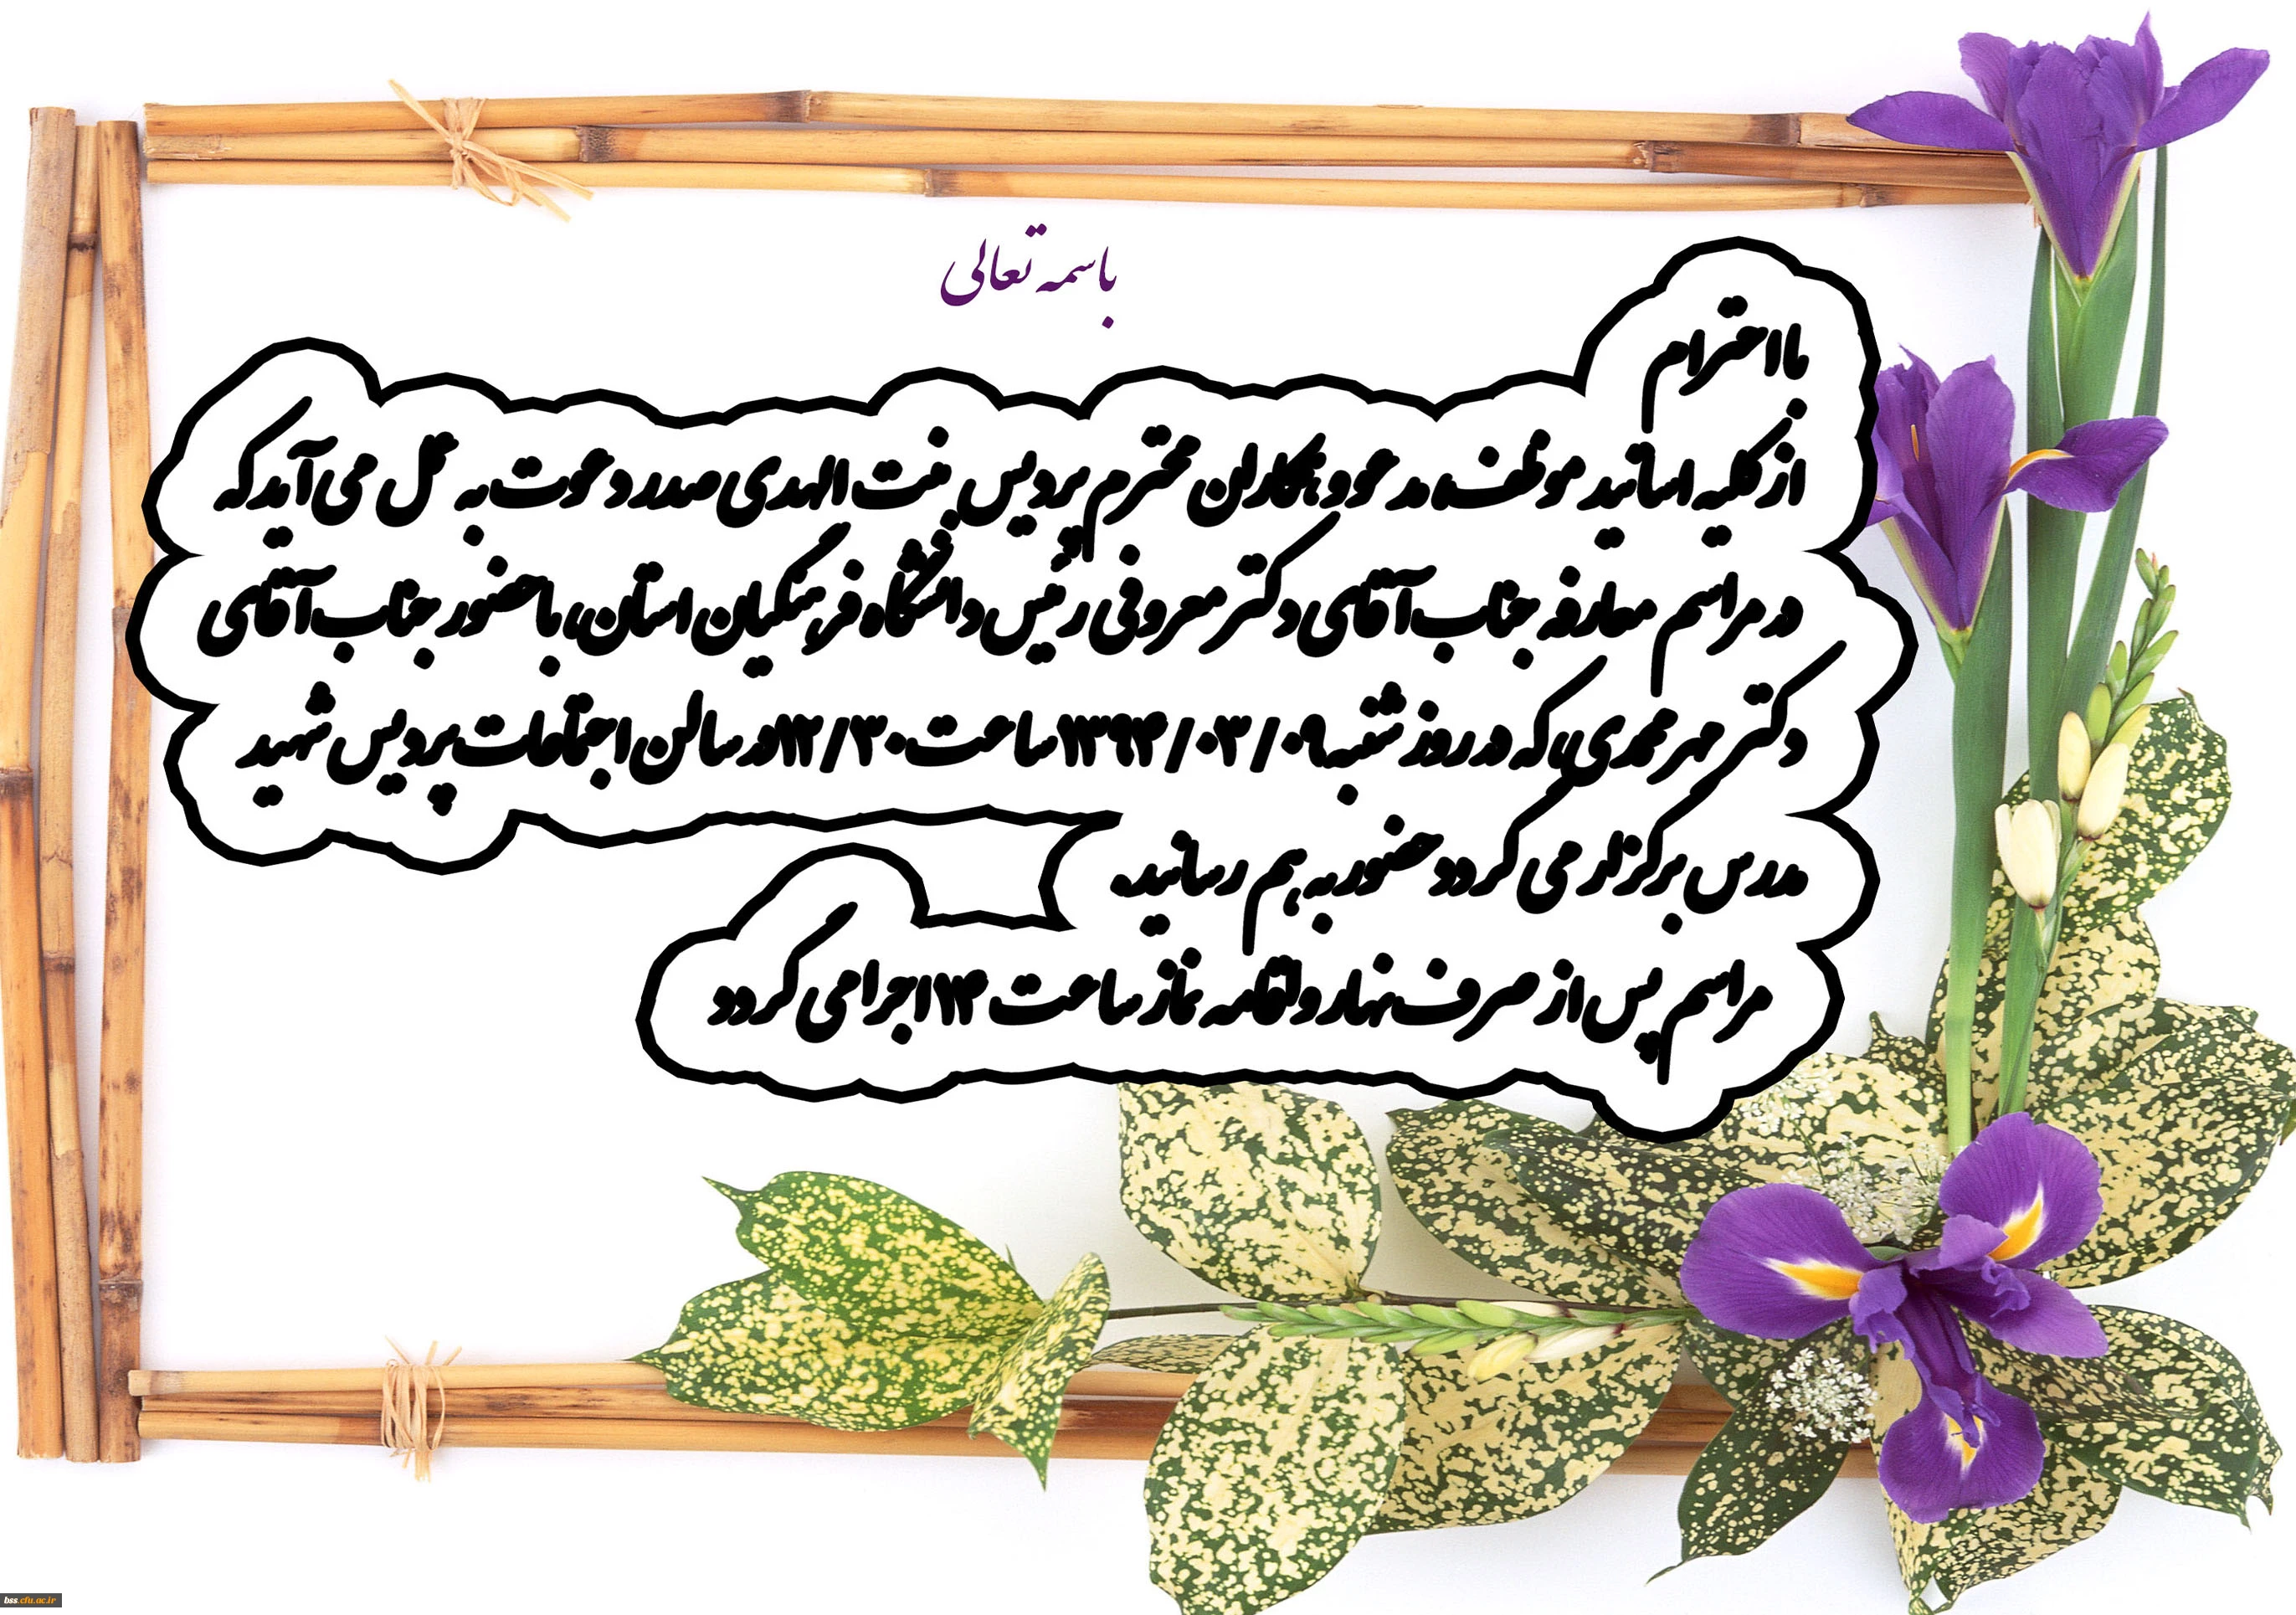 باسمه تعالی
بااحترام
از کلیه اساتید موظف، مدعو و همکاران محترم پردیس بنت الهدی صدر دعوت به عمل می آید که
در مراسم معارفه جناب آقای دکتر معروفی رئیس دانشگاه فرهنگیان استان، با حضور جناب آقای
دکتر مهرمحمدی، که در روز شنبه ۱۳۹۴/۰۳/۰۹ ساعت ۱۲/۳۰ در سالن اجتماعات پردیس شهید
مدرس برگزار می گردد حضور به هم رسانید.
مراسم پس از صرف نهار و اقامه نماز ساعت ۱۴ اجرا می گردد
bss.cfu.ac.ir